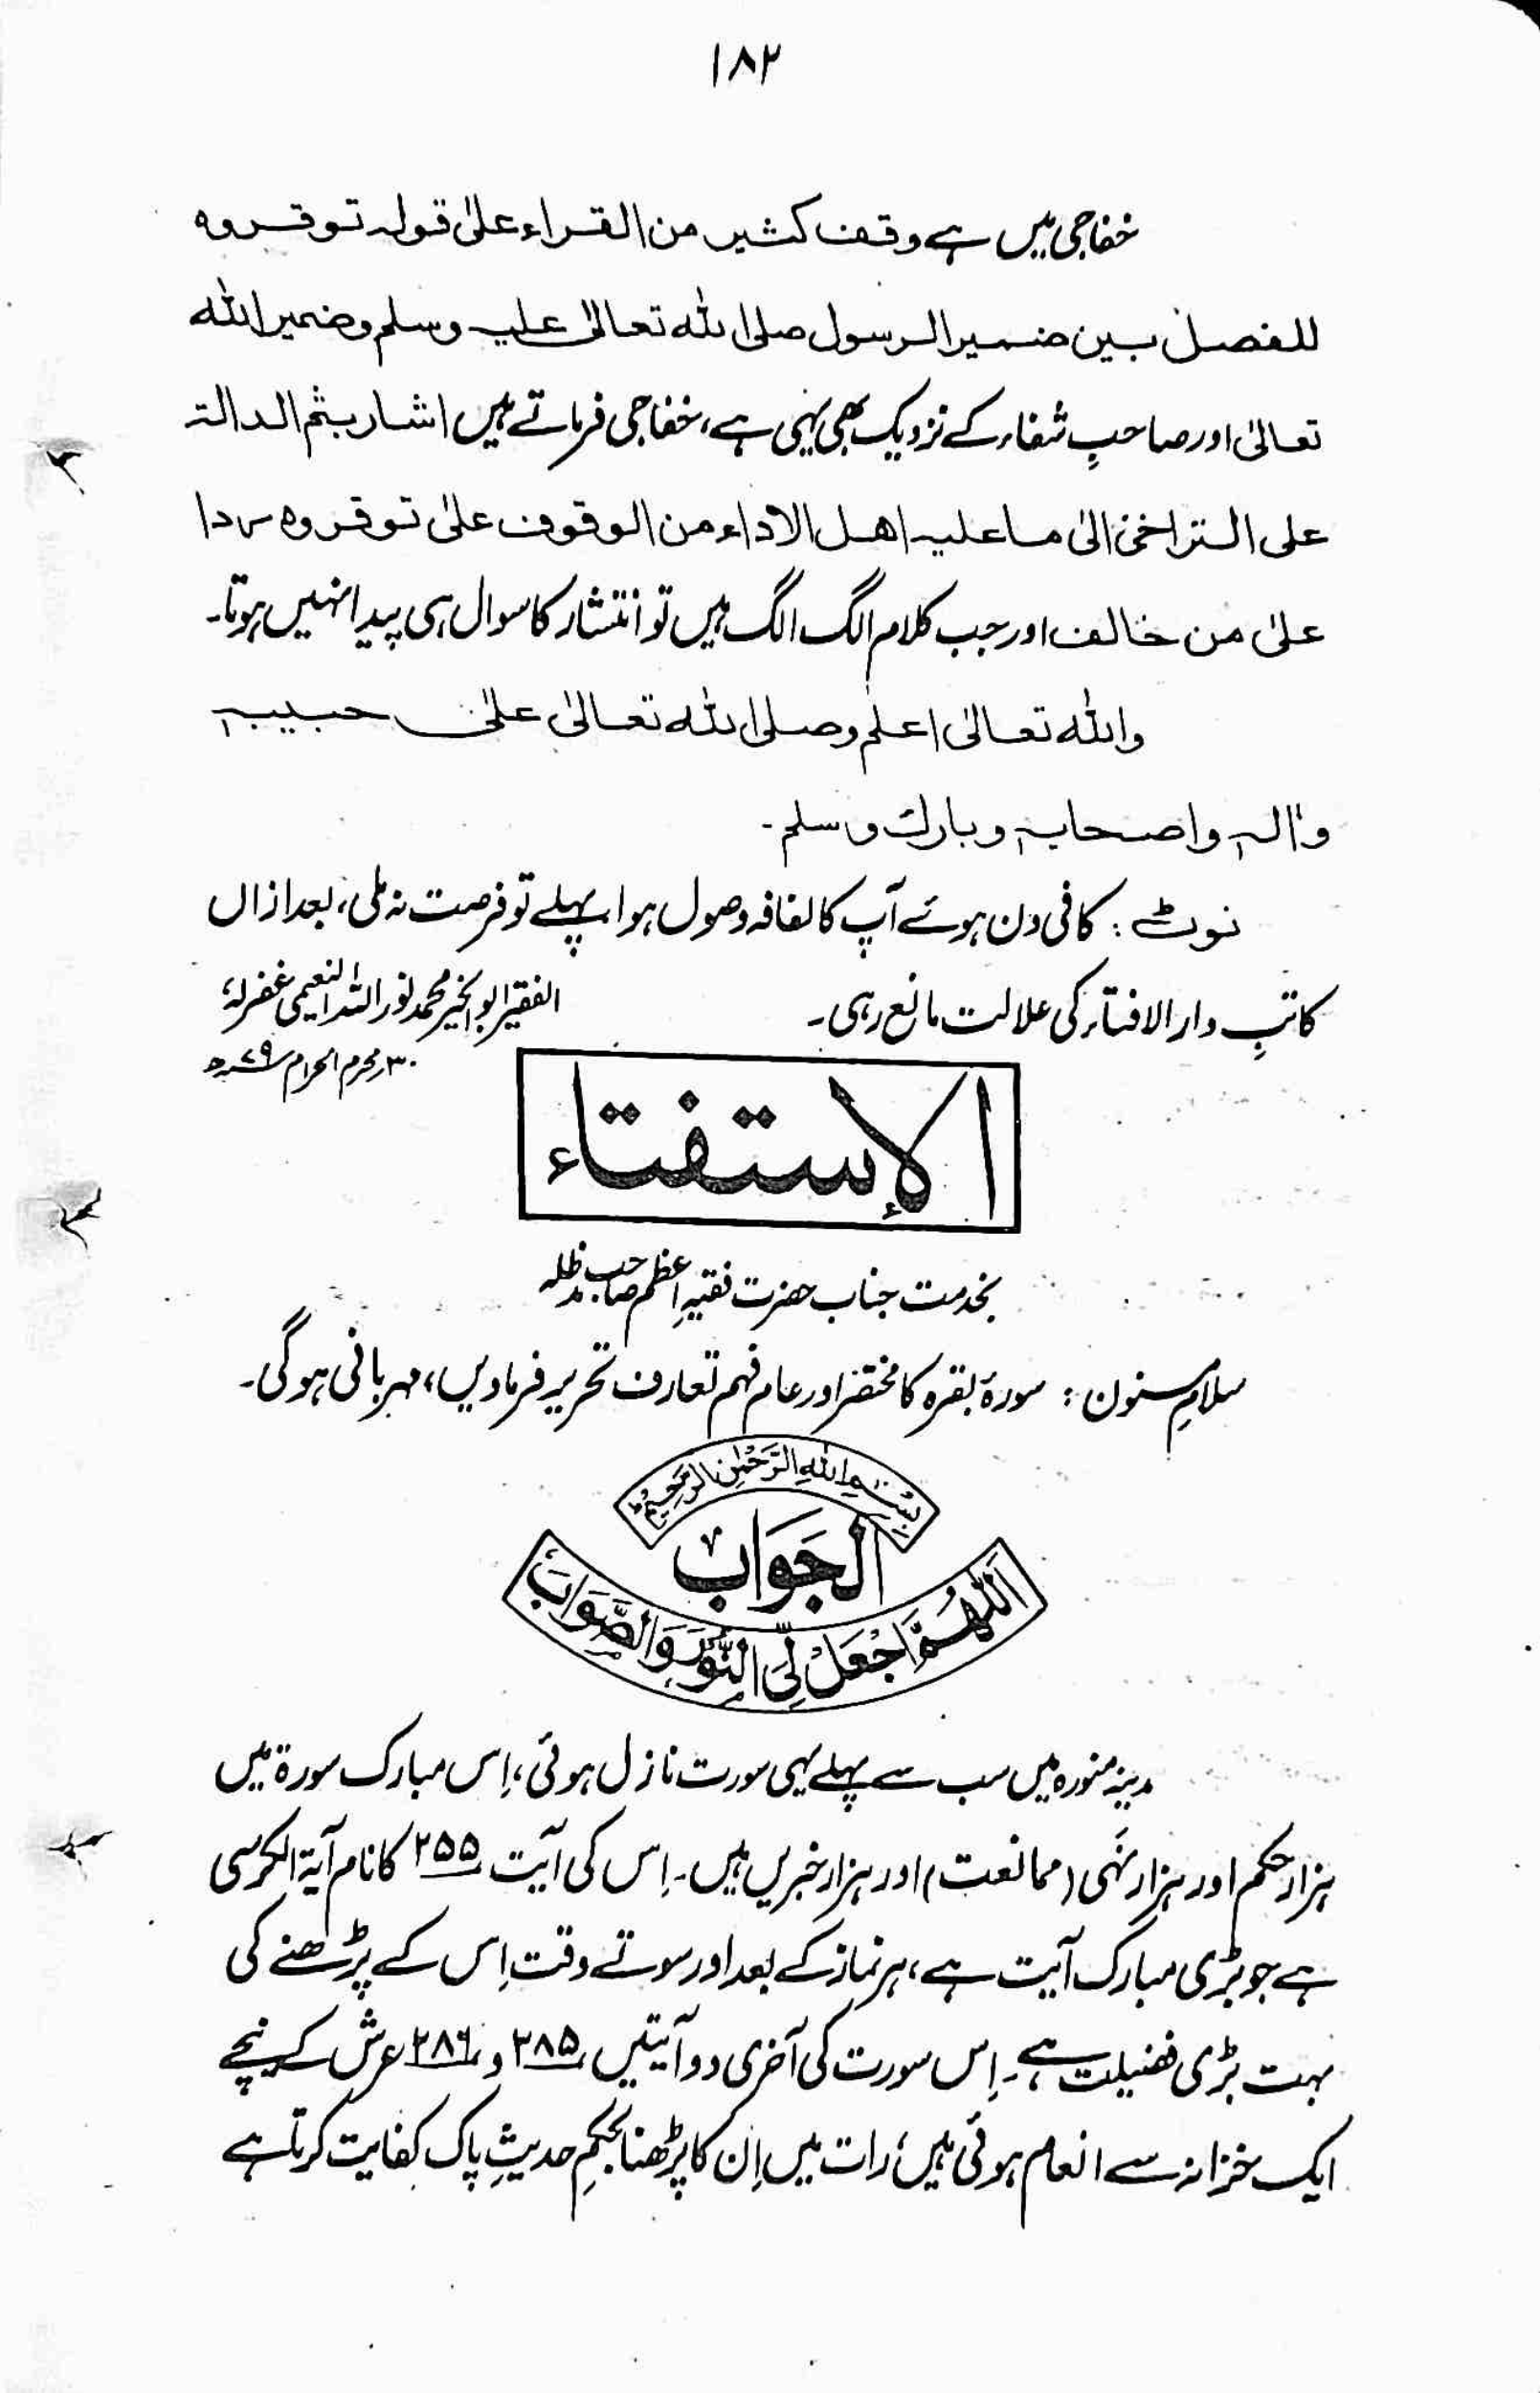 ۱۸۲
خفاجی میں ہے وقف کثیر من القراء علیٰ قولہ توقروہ
للفصل بین ضمیر الرسول صلی اللہ تعالیٰ علیہ وسلم وضمیر اللہ
تعالیٰ اور صاحبِ شفاء کے نزدیک بھی یہی ہے، خفاجی فرماتے ہیں اشار بثم الدالۃ
علی التراخی الیٰ ما علیہ اھل الاداء من الوقوف علیٰ توقروہ ردا
علیٰ من خالف اور جب کلام الگ الگ ہیں تو انتشار کا سوال ہی پیدا نہیں ہوتا۔
واللہ تعالیٰ اعلم وصلی اللہ تعالیٰ علیٰ حبیبہٖ
واٰلہٖ واصحابہٖ وبارک وسلم۔
نوٹ : کافی دن ہوئے آپ کا لفافہ وصول ہوا، پہلے تو فرصت نہ ملی، بعد ازاں
کاتبِ دار الافتاء کی علالت مانع رہی۔
الفقیر ابو الخیر محمد نور اللہ النعیمی غفرلہٗ
۳۰ محرم الحرام ۷۹ھ
الإستفتاء
بخدمت جناب حضرت فقیہِ اعظم صاحب مدظلہ
سلامِ مسنون : سورۂ بقرہ کا مختصر اور عام فہم تعارف تحریر فرما دیں، مہربانی ہوگی۔
بِسْمِ اللهِ الرَّحْمٰنِ الرَّحِيْمِ
الجَوَابُ
اَللّٰهُمَّ اجْعَلْ لِّيَ النُّوْرَ وَالصَّوَابَ
مدینہ منورہ میں سب سے پہلے یہی سورت نازل ہوئی، اِس مبارک سورۃ میں
ہزار حکم اور ہزار نَہی (ممانعت) اور ہزار خبریں ہیں۔ اِس کی آیت ۲۵۵ کا نام آیۃ الکرسی
ہے جو بڑی مبارک آیت ہے، ہر نماز کے بعد اور سوتے وقت اِس کے پڑھنے کی
بہت بڑی فضیلت ہے۔ اِس سورت کی آخری دو آیتیں ۲۸۵ و ۲۸۶ عرش کے نیچے
ایک خزانہ سے انعام ہوئی ہیں، رات میں اِن کا پڑھنا بحکمِ حدیثِ پاک کفایت کرتا ہے